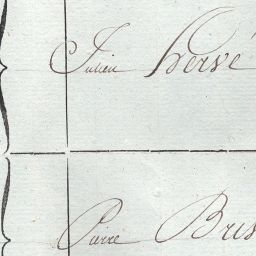 Julien Hervé
Pierre Bris